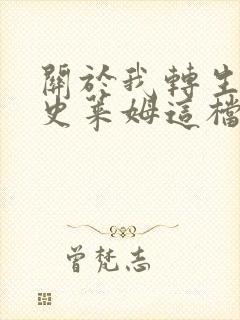 關於我轉生
史萊姆這檔
曾梵志